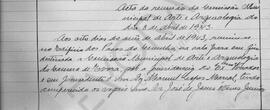 Acta da reunião da Comissão Mu-
nicipal de Arte e Arqueologia do
dia 8 de abril de 1943
Aos oito dias de abril de 1943, reuniu-se
no edificio dos Paços do Concelho, na sala para este fim
destinada a Comissão Municipal de Arte e Arqueologia
do Concelho de sob a presidencia do Ex.mo
Snr. Dr. Manuel Lopes Marçal, tendo
comparecido os vogais Snrs. Dr. José de